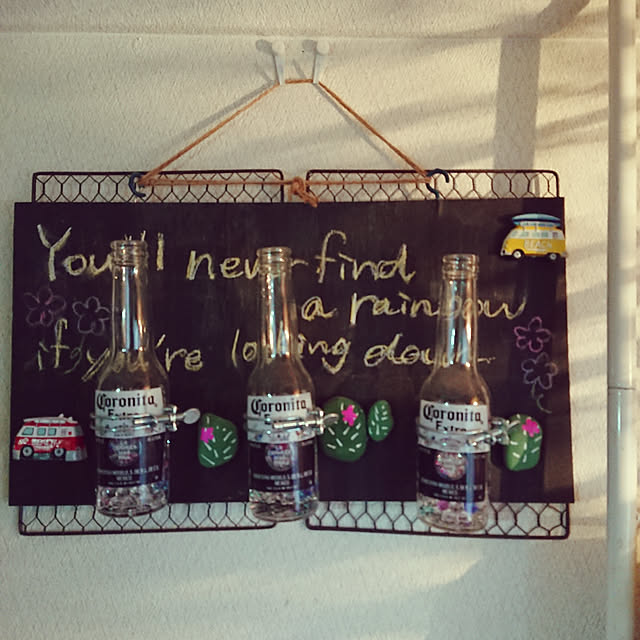 You'll never find
a rainbow
if you're looking down
BEACH
Coronita
Extra
Coronita
Extra
Coronita
Extra